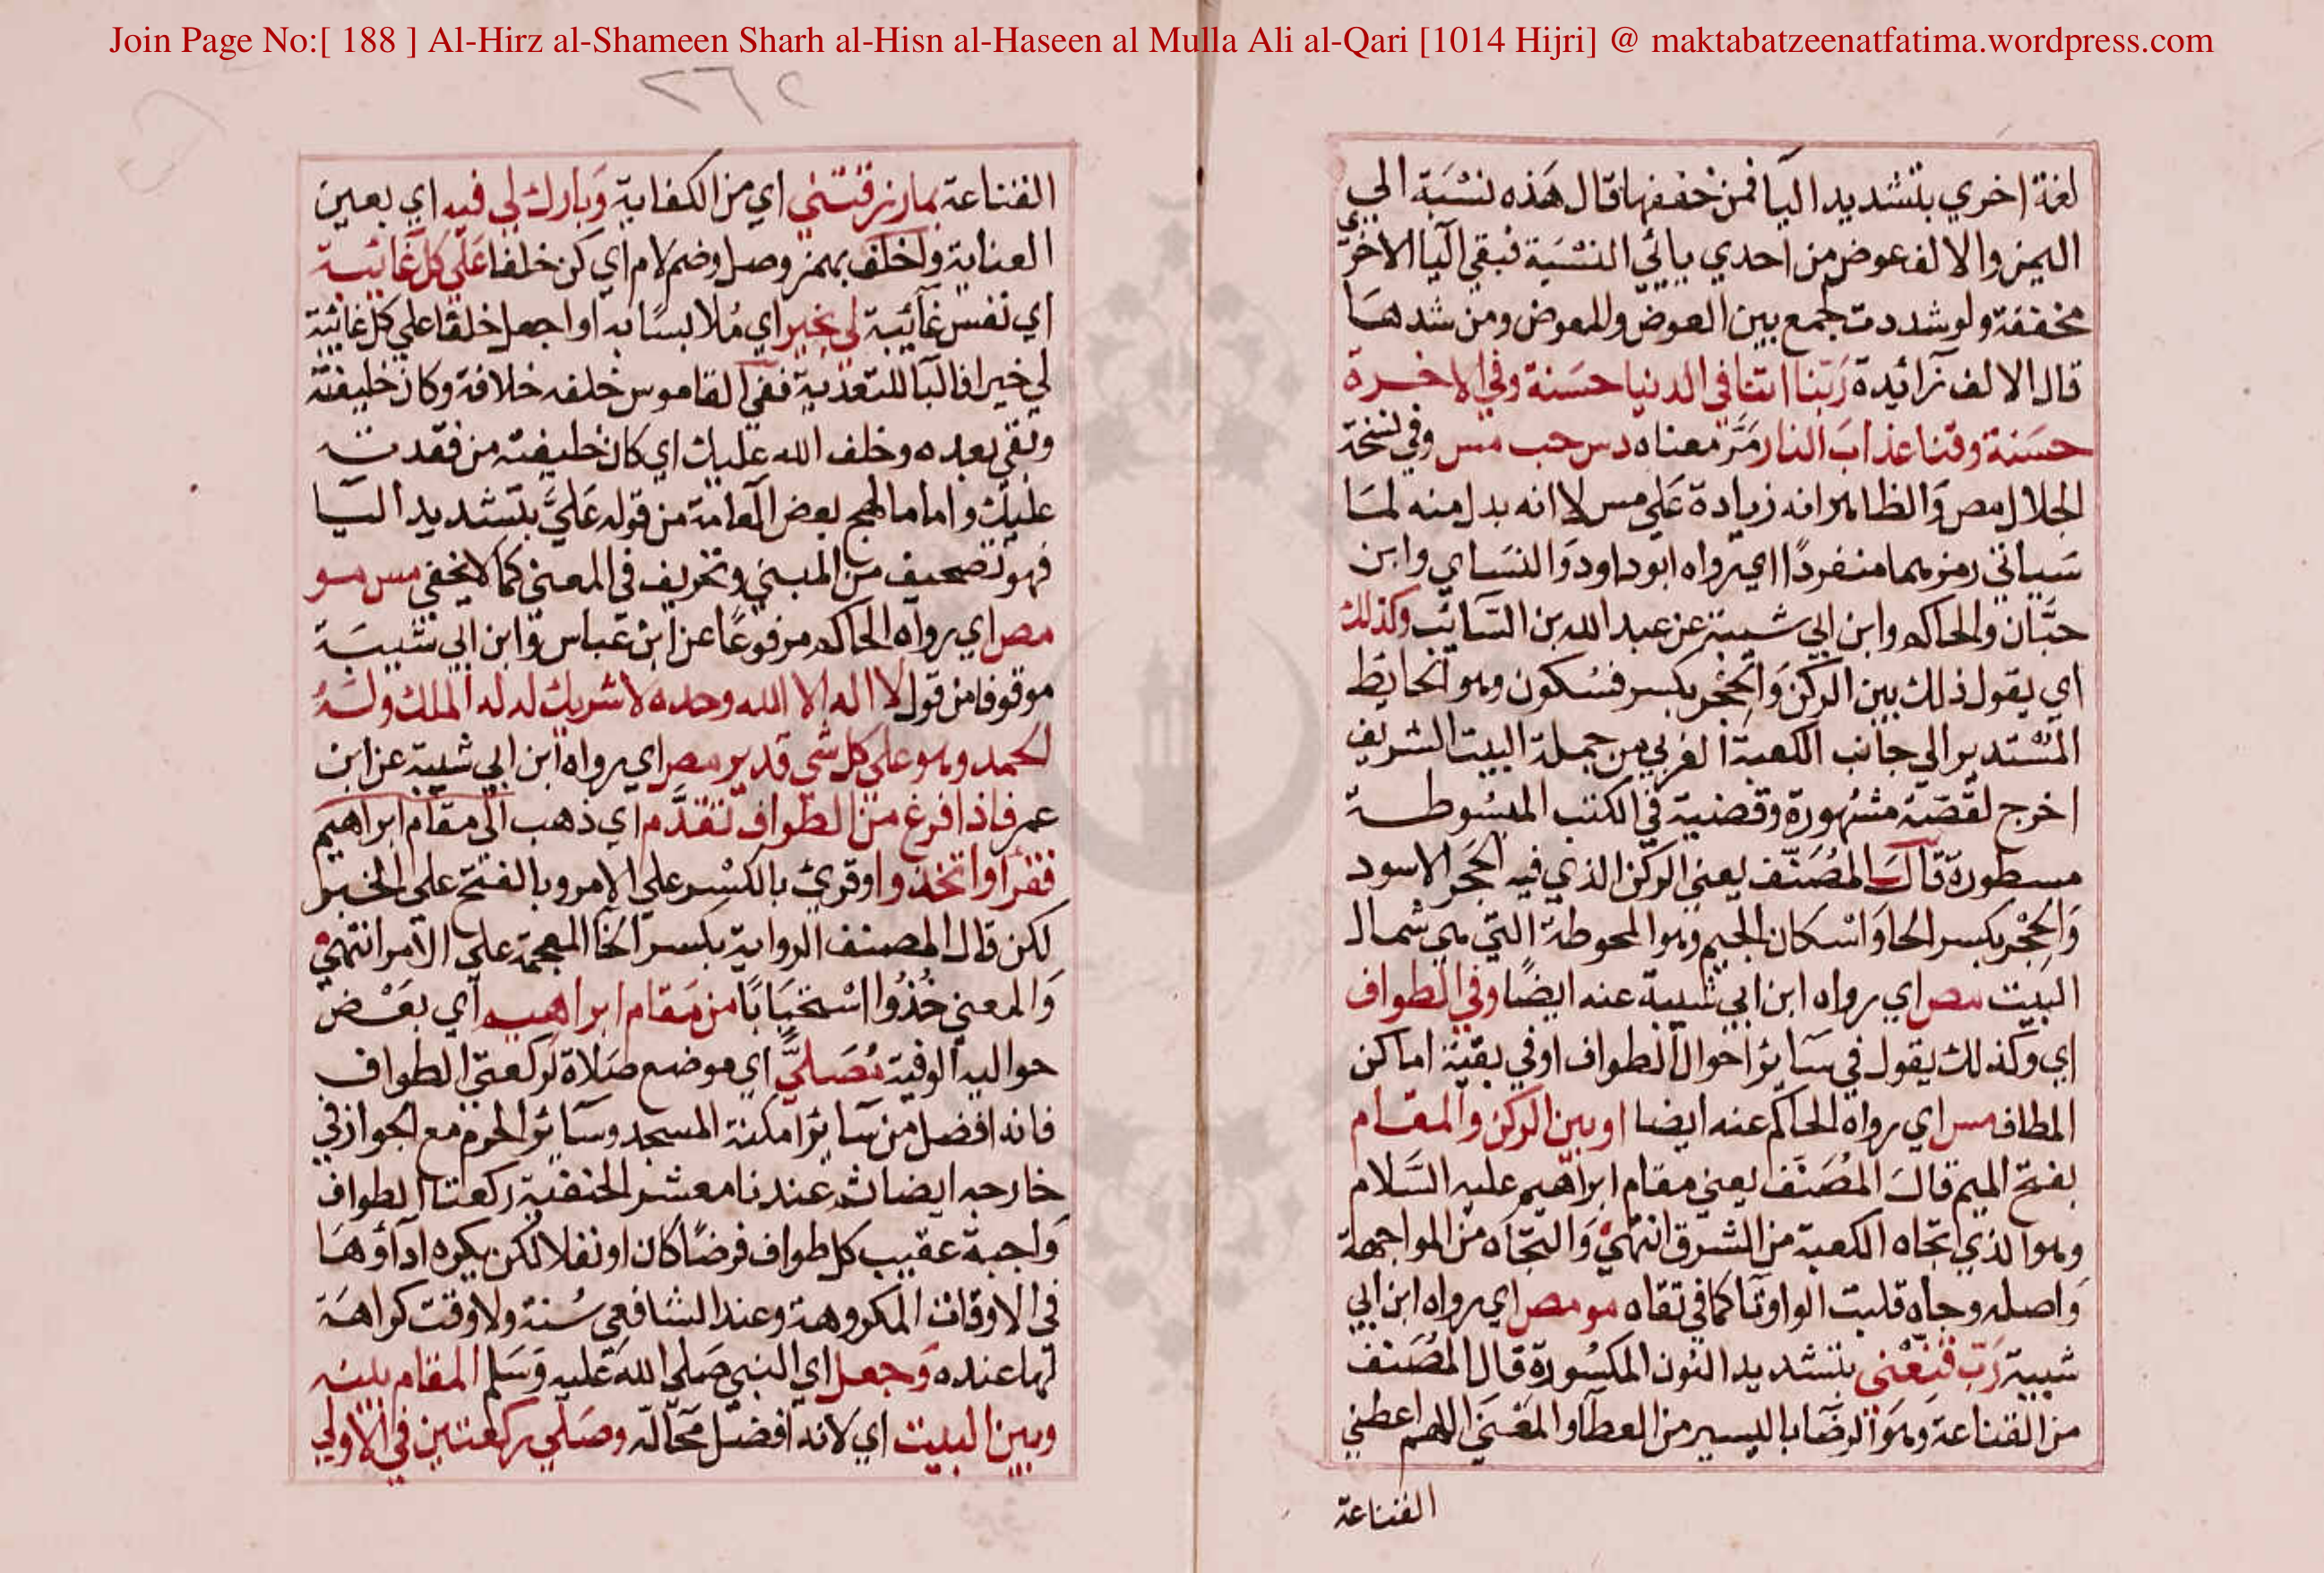 Join Page No:[ 188 ] Al-Hirz al-Shameen Sharh al-Hisn al-Haseen al Mulla Ali al-Qari [1014 Hijri] @ maktabatzeenatfatima.wordpress.com
٢٦٢
لغة اخري بتشديد اليا فمن خففها قال هذه نسبة الي
اليمن والالف عوض من احدي يائي النسبة فبقي اليا الاخري
مخففة ولو شددت لجمع بين العوض والمعوض ومن شددها
قال الالف زائيدة رَبّنا اتنا في الدنيا حسَنة وفي الاخرة
حسَنة وقنا عذابَ النار مَرَّ معناه د س حب مس وفي نسخة
الجلال مص وَالظاهر انه زيادة عَلي مس لا انه بدل منه لما
سَياتي رمزهما منفردًا اي رواه ابو داود وَالنسَاي وابن
حبَّان والحاكم وابن ابي شيبة عن عبد الله بن السَّائب وكذلك
اي يقول ذلك بين الركن وَالحِجْر بكسر فسُكون وهو الحايط
المسْتدير الي جانب الكعبة الغربي من جملة البيت الشريف
اخرج لقصّة مشهورة وقضية في الكتب المبسُوطة
مسطورة قالَ المُصَنّف يعني الركن الذي فيه الحَجَر الاسود
وَالحِجْر بكسر الحا وَاسْكان الجيم وهو المحوطة التي هي شمال
البيت مص اي رواه ابن ابي شيبة عنه ايضًا وفي الطواف
اي وكذلك يقول في سَايرُ احوال الطواف او في بقية اماكن
المطاف مس اي رواه الحاكم عنه ايضا او بين الركن والمقام
بفتح الميم قالَ المُصَنّف يعني مقام ابراهيم عليه السَّلام
وهو الذي تجاه الكعبة من الشرق انتهيْ وَالتجاه من المواجهة
وَاصله وجاه قلبت الواو تا كما في تقاه مو مص اي رواه ابن ابي
شيبة رَبّ قنّعْني بتشديد النون المكسُورة قال المُصَنف
من القناعة وهوَ الرضَا باليسير من العطا والمَعْني اللهم اعطني
القناعة
القناعة بما رزقتني اي من الكفاية وَبارك لي فيه اي بعين
العناية واخلف بهمز وصل وضم لام اي كن خلفا عَلَي كل غائبة
اي نفس غائبة لي بخير اي مُلابسًا به او اجعل خلفا علي كل غائبة
لي خيرا فالبا للتعدية ففي القاموس خلفه خلافة وكان خليفته
وبقي بعده وخلف الله عليك اي كان خليفة من فقدته
عليك واما ما لهج بعض العامة من قوله عَلَيَّ بتشديد اليا
فهو تصحيف من المبني وتحريف في المعني كما لا يخفي مس مو
مص اي رواه الحاكم مرفوعًا عن ابن عباس وابن ابي شيبَة
موقوفا من قول لا اله الا الله وحده لا شريك له له الملك وله
الحمد وهو علي كل شي قدير مص اي رواه ابن ابي شيبة عن ابن
عمر فاذا فرغ من الطواف تقدَّم اي ذهب الي مقام ابراهيم
فقرأ واتخذوا وقرئ بالكسْر علي الامر وبالفتح علي الخبر
لكن قال المصنف الرواية بكسر الخا المعجمة علي الامر انتهي
وَالمعني خُذُوا اسْتحبَابًا من مَقام ابراهيم اي بعَض
حواليه الوفية مُصَلَّيً اي موضع صَلاة لركعتي الطواف
فانه افضل من سَايرُ امكنة المسجد وسَايرُ الحرم مع الجواز في
خارجه ايضا ثم عندنا معشر الحنفية ركعتا الطواف
وَاجبة عقيب كل طواف فرضًا كان او نفلا لكن يكره اداؤهَا
في الاوقات المكروهة وعند الشافعي سُنة ولا وقت كراهَة
لها عنده وَجعل اي النبي صَلي الله عَليه وَسَلم المقام بينه
وبين البيت اي لانه افضل محَالّه وصَلّي ركعتين في الاولي